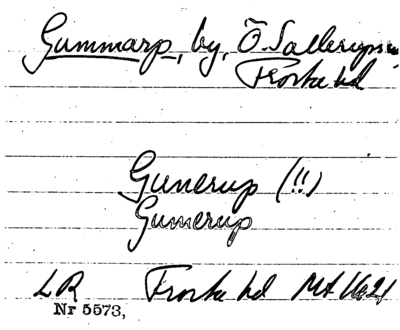 Gummarp, by, Ö. Sallerups
Frosta hd
Gunerup (!!)
Gumerup
LR Frosta hd Mt 1621
Nr 5573,